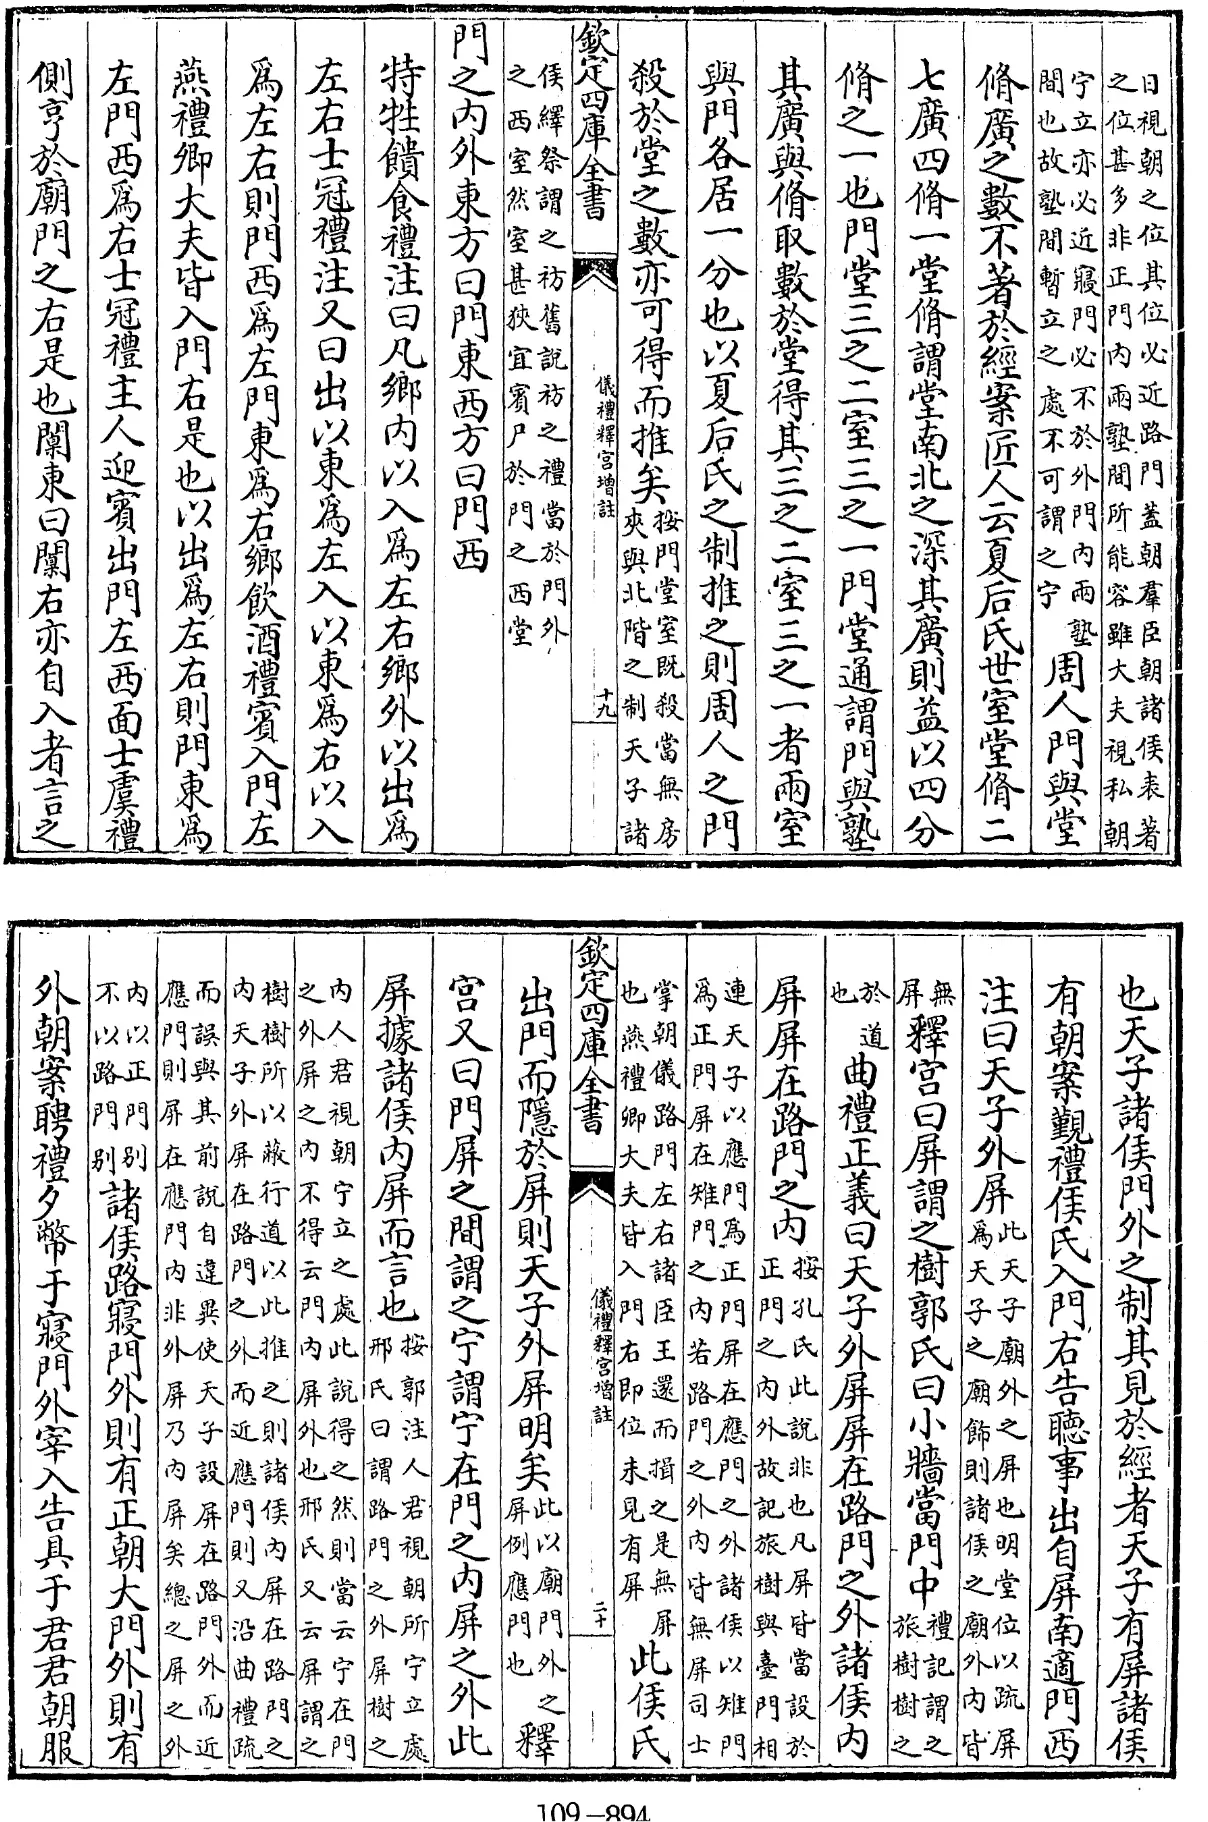 日視朝之位其位必近路門蓋朝羣臣朝諸侯表著
之位甚多非正門內兩塾間所能容雖大夫視私朝
宁立亦必近寢門必不於外門內兩塾
間也故塾間暫立之處不可謂之宁
周人門與堂
脩廣之數不著於經案匠人云夏后氏世室堂脩二
七廣四脩一堂脩謂堂南北之深其廣則益以四分
脩之一也門堂三之二室三之一門堂通謂門與塾
其廣與脩取數於堂得其三之二室三之一者兩室
與門各居一分也以夏后氏之制推之則周人之門
殺於堂之數亦可得而推矣
按門堂室既殺當無房
夾與北階之制天子諸
欽定四庫全書
儀禮釋宮增註
十九
侯繹祭謂之祊舊說祊之禮當於門外
之西室然室甚狹宜賓尸於門之西堂
門之內外東方曰門東西方曰門西
特牲饋食禮注曰凡鄉內以入為左右鄉外以出為
左右士冠禮注又曰出以東為左入以東為右以入
為左右則門西為左門東為右鄉飲酒禮賓入門左
燕禮卿大夫皆入門右是也以出為左右則門東為
左門西為右士冠禮主人迎賓出門左西面士虞禮
側亨於廟門之右是也闑東曰闑右亦自入者言之
也天子諸侯門外之制其見於經者天子有屏諸侯
有朝案覲禮侯氏入門右告聽事出自屏南適門西
注曰天子外屏
此天子廟外之屏也明堂位以疏屏
為天子之廟飾則諸侯之廟外內皆
無
屏
釋宮曰屏謂之樹郭氏曰小牆當門中
禮記謂之
旅樹樹之
於道
也
曲禮正義曰天子外屏屏在路門之外諸侯內
屏屏在路門之內
按孔氏此說非也凡屏皆當設於
正門之內外故記旅樹與臺門相
連天子以應門為正門屏在應門之外諸侯以雉門
為正門屏在雉門之內若路門之外內皆無屏司士
掌朝儀路門左右諸臣王還而揖之是無屏
也燕禮卿大夫皆入門右即位未見有屏
此侯氏
欽定四庫全書
儀禮釋宮增註
二十
出門而隱於屏則天子外屏明矣
此以廟門外之
屏例應門也
釋
宮又曰門屏之間謂之宁謂宁在門之內屏之外此
屏據諸侯內屏而言也
按郭注人君視朝所宁立處
邢氏曰謂路門之外屏樹之
內人君視朝宁立之處此說得之然則當云宁在門
之外屏之內不得云門內屏外也邢氏又云屏謂之
樹樹所以蔽行道以此推之則諸侯內屏在路門之
內天子外屏在路門之外而近應門則又沿曲禮疏
而誤與其前說自違異使天子設屏在路門外而近
應門則屏在應門內非外屏乃內屏矣總之屏之外
內以正門別
不以路門別
諸侯路寢門外則有正朝大門外則有
外朝案聘禮夕幣于寢門外宰入告具于君君朝服
109-894